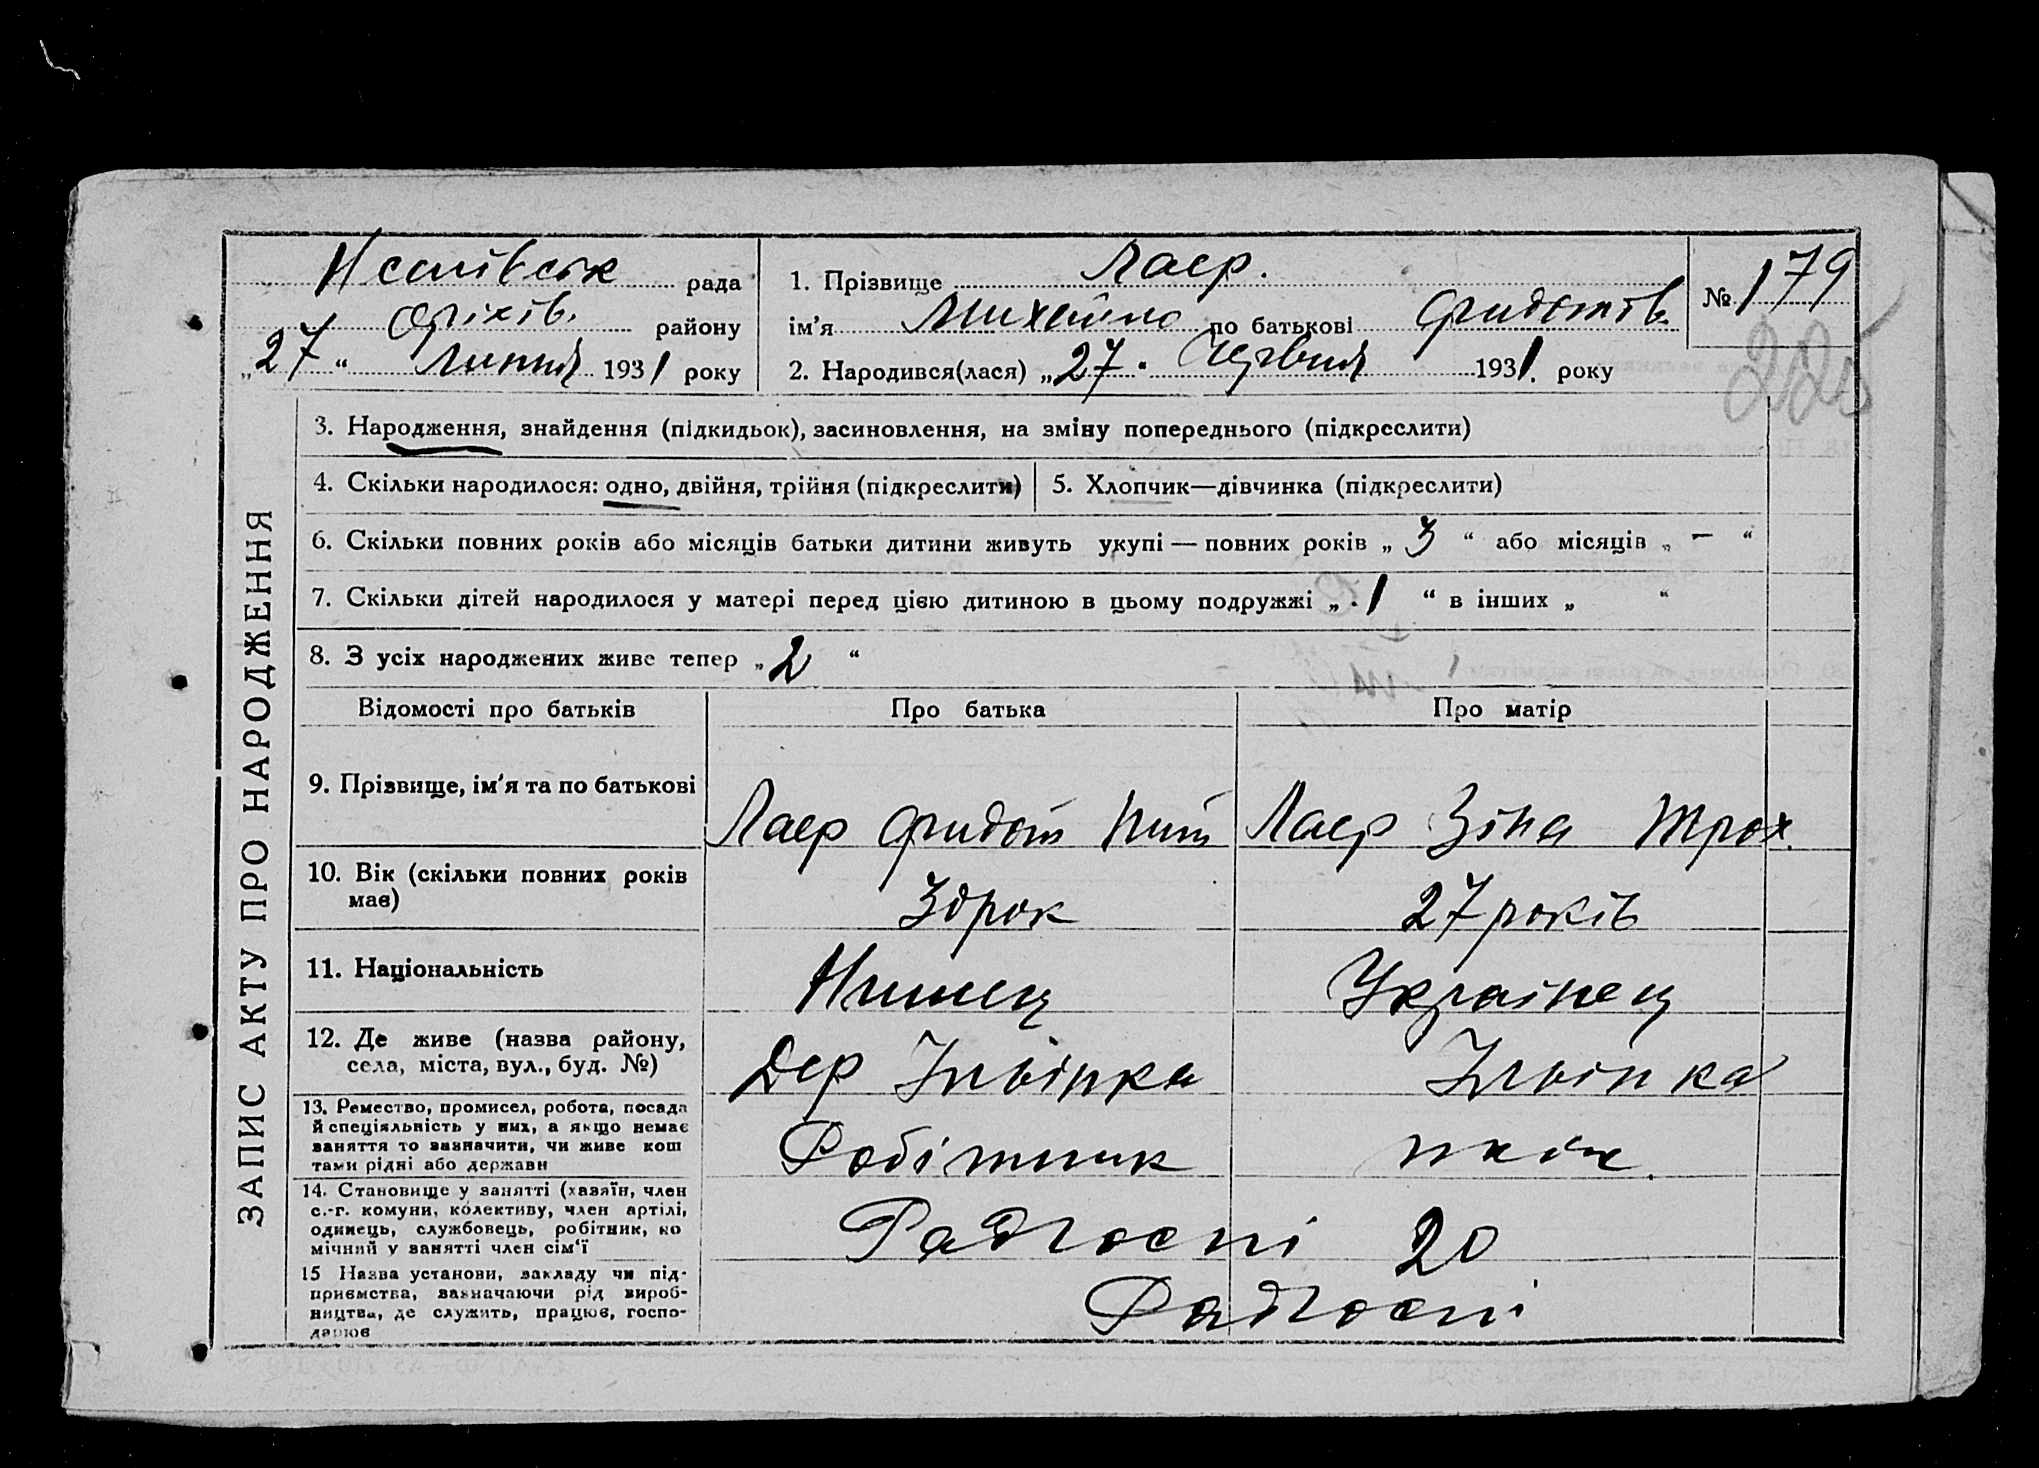 рада
Оріхів. району
„27“ Липня 1931 року
1. Прізвище Лаєр.
ім'я Михайло по батькові Фридотів.
2. Народився(лася) „27" Червня 1931. року
№ 179
225
ЗАПИС АКТУ ПРО НАРОДЖЕННЯ
3. Народження, знайдення (підкидьок), засиновлення, на зміну попереднього (підкреслити)
4. Скільки народилося: одно, двійня, трійня (підкреслити)
5. Хлопчик—дівчинка (підкреслити)
6. Скільки повних років або місяців батьки дитини живуть укупі — повних років „3“ або місяців „–“
7. Скільки дітей народилося у матері перед цією дитиною в цьому подружжі „1“ в інших „ “
8. З усіх народжених живе тепер „2“
Відомості про батьків Про батька Про матір
9. Прізвище, ім'я та по батькові
Лаєр Фридот Лаєр Зіна Трох.
10. Вік (скільки повних років
має)
30рок 27років
11. Національність
Нимец Українец
12. Де живе (назва району,
села, міста, вул., буд. №)
Дер Ільінка Ільінка
13. Ремество, промисел, робота, посада
й спеціяльність у них, а якщо немає
заняття то зазначити, чи живе кош
тами рідні або держави
Робітник
14. Становище у занятті (хазяїн, член
с.-г. комуни, колективу, член артілі,
одинець, службовець, робітник, по
мічний у занятті член сім'ї
Радгоспі 20
15 Назва установи, закладу чи під-
приємства, зазначаючи рід вироб-
ництва, де служить, працює, госпо-
дарює
Радгоспі